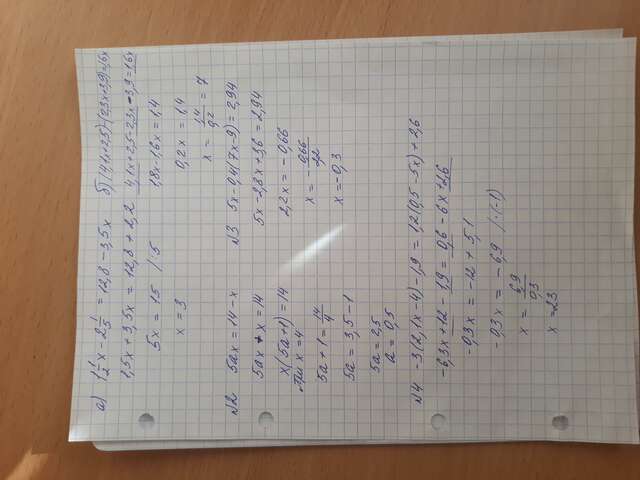 а) 1 1/2 x - 2 1/5 = 12,8 - 3,5x
1,5x + 3,5x = 12,8 + 2,2
5x = 15 /:5
x = 3
б) (4,1x+2,5)-(2,3x+3,9)=1,6x
4,1x+2,5-2,3x-3,9=1,6x
1,8x-1,6x = 1,4
0,2x = 1,4
x = 1,4/0,2 = 7
№2 5ax = 14 - x
5ax + x = 14
x(5a+1) = 14
при x = 4
5a + 1 = 14/4
5a = 3,5 - 1
5a = 2,5
a = 0,5
№3 5x - 0,4(7x-9) = 2,94
5x - 2,8x + 3,6 = 2,94
2,2x = -0,66
x = - 0,66/2,2
x = -0,3
№4 -3(2,1x-4)-1,9 = 1,2(0,5-5x)+2,6
-6,3x+12-1,9 = 0,6-6x+2,6
-0,3x = -12 + 5,1
-0,3x = -6,9 /:(-1)
x = 6,9/0,3
x = 23